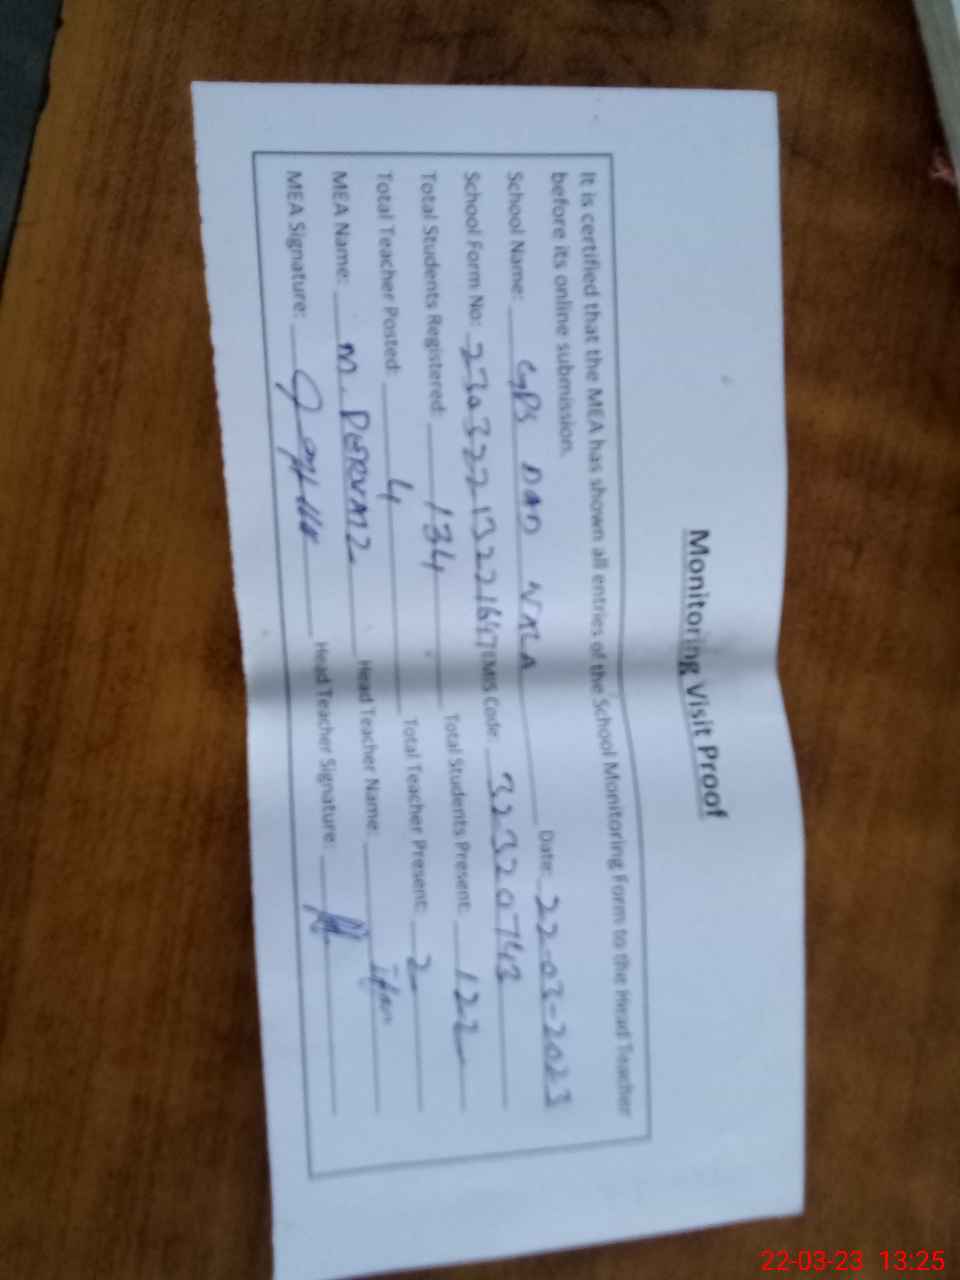 Monitoring Visit Proof
It is certified that the MEA has shown all entries of the School Monitoring Form to the Head Teacher
before its online submission.
School Name: GPS DAD Date: 22-03-2023
School Form No: EMIS Code: 32320743
Total Students Registered: 134 Total Students Present: 122
Total Teacher Posted: 4 Total Teacher Present: 2
MEA Name: M. PERVAIZ Head Teacher Name:
MEA Signature: Head Teacher Signature:
22-03-23 13:25